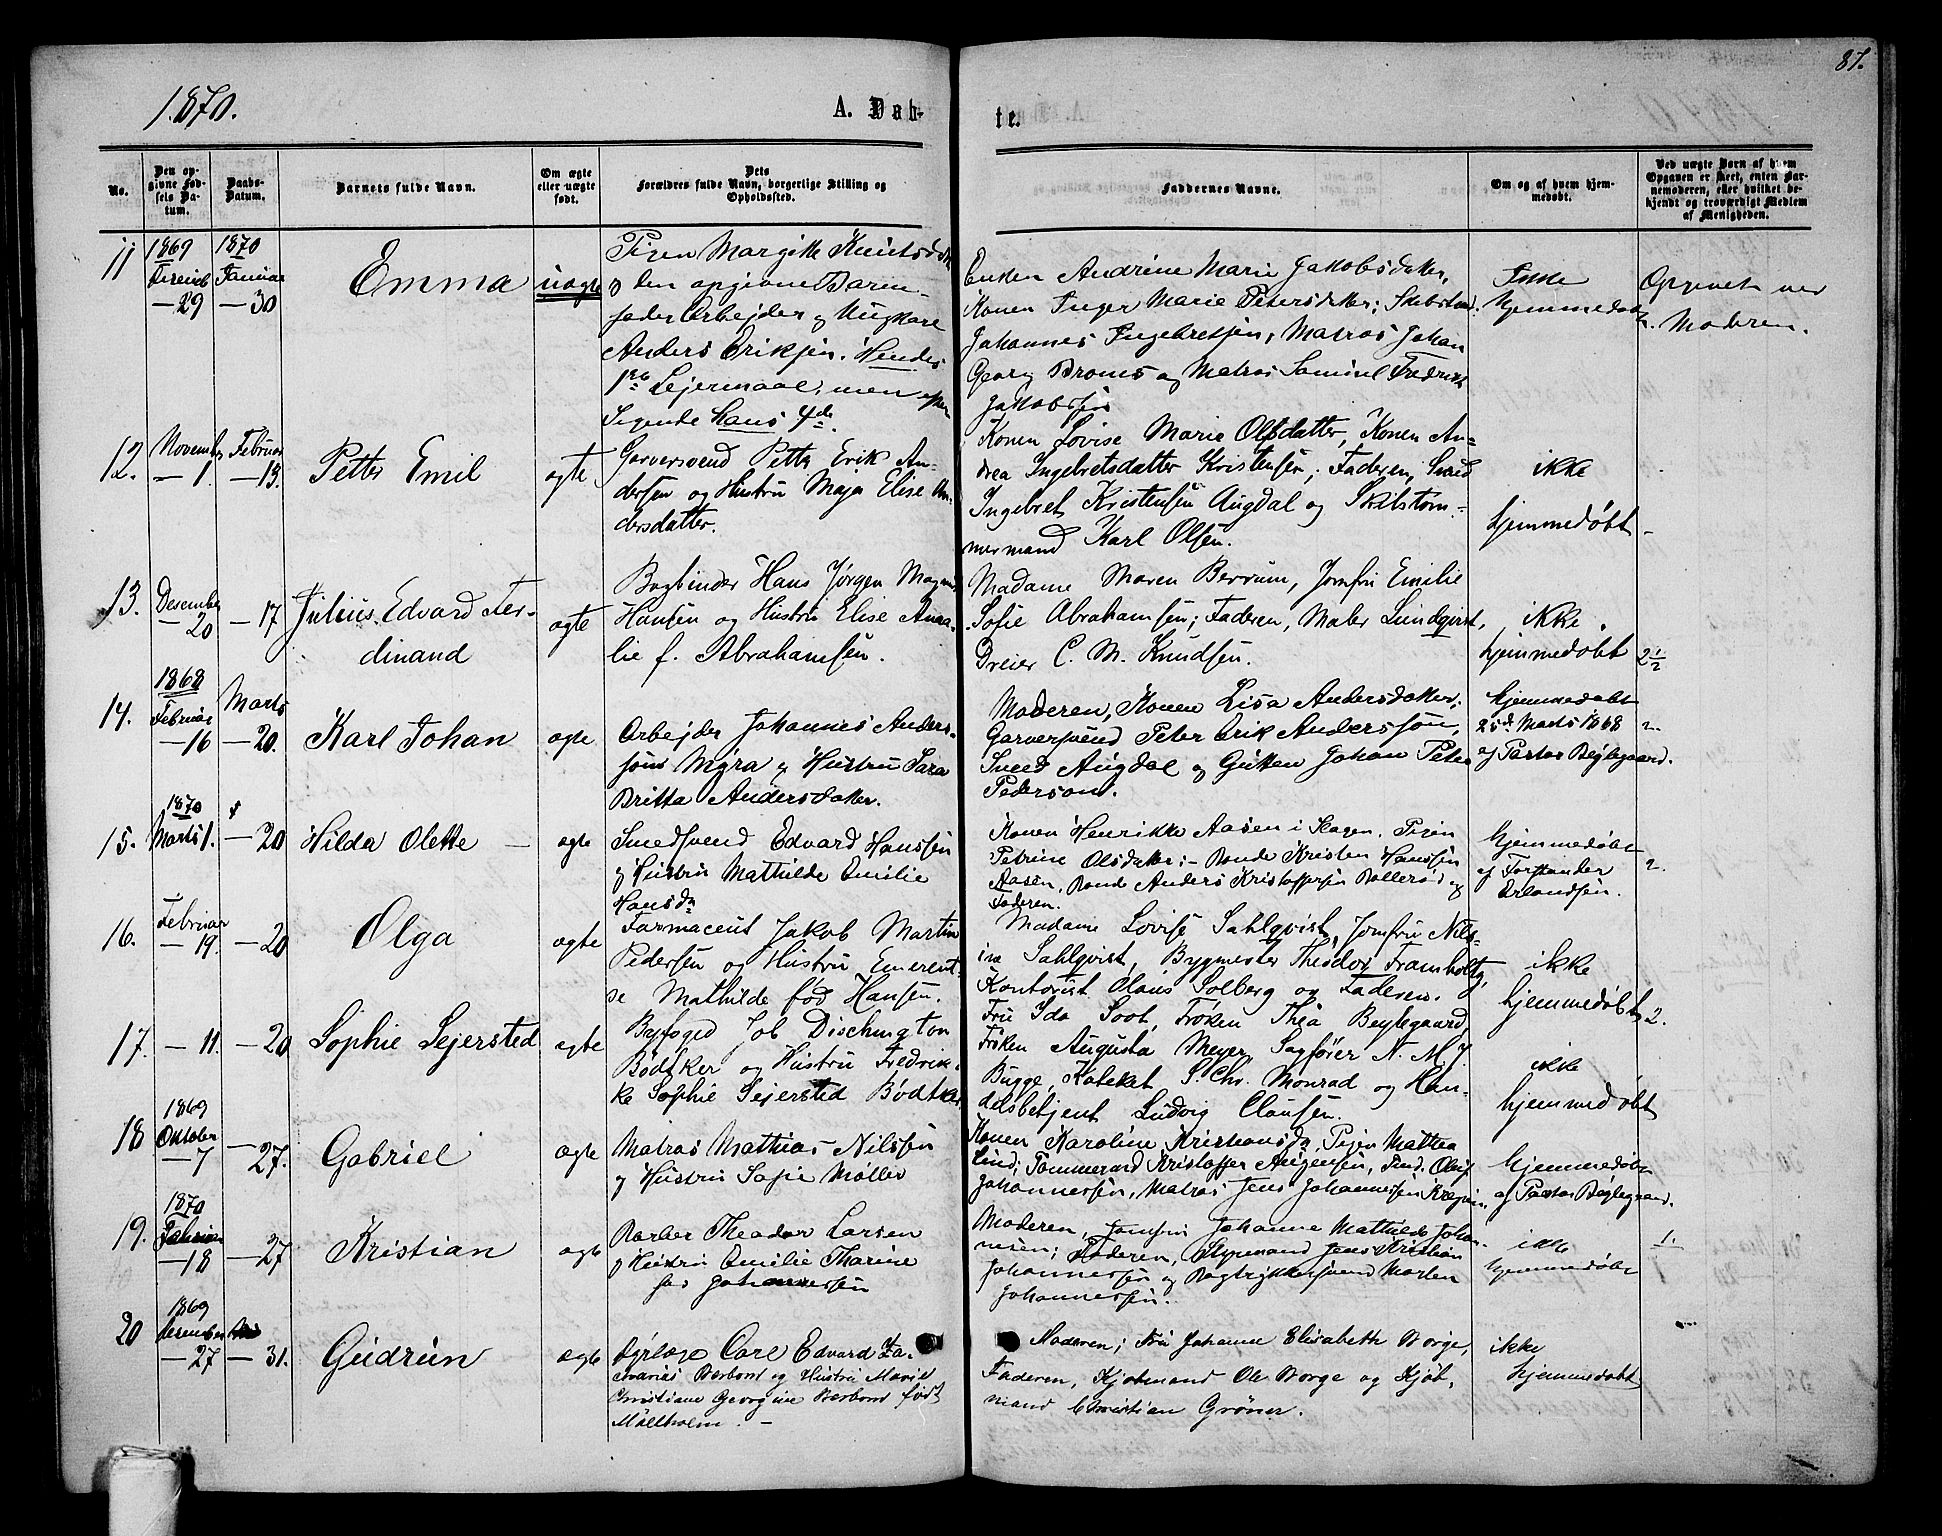 1870.
A. Døb-
te.
87.
No.
Den op-
givne Fød-
sels Da-
tum.
Daabs-
Datum.
Barnets fulde Navn.
Om ægte
eller uægte
født.
Dets
Forældres fulde Navn, borgerlige Stilling og
Opholdssted.
Faddernes Navne.
Om og af hvem hjem-
medøbt.
Ved uægte Børn af hvem
Opgaven er skeet, enten Bar-
nemoderen, eller hvilket be-
kjendt og troværdigt Medlem
af Menigheden.
11
1869
Desemb
— 29
1870
Januar
— 30
Emma
uægte
Pigen Margitte Knutsd
og den opgivne Barne-
fader Arbejder og Ungkarl
Anders Eriksen. Hendes
1ste Lejermaal, men efter
Sigende hans 4de.
Enken Andrine Marie Jakobsdatter,
Konen Inger Marie Petersdatter; Skibstømd.
Johannes Ingebretsen, Matros Johan
Georg Broms og Matros Samuel Fredrik
Jakobsen
Ikke
hjemmedøbt.
Opgivet ved
Moderen.
12.
November
— 1.
Februar
— 13.
Petter Emil
ægte
Garversvend Petter Erik An-
dersen og Hustru Maja Elise An-
dersdatter.
Konen Lovise Marie Olsdatter, Konen An-
drea Ingebretsdatter Kristensen; Faderen, Smed
Ingebret Kristensen Augdal og Skibstøm-
mermand Karl Olsen.
ikke
hjemmedøbt
13.
Desember
— 20
— 17
Julius Edvard Fer-
dinand
ægte
Bogbinder Hans Jørgen Magnus
Hansen og Hustru Elise Ama-
lie f. Abrahamsen.
Madame Maren Berrum, Jomfru Emilie
Sofie Abrahamsen; Faderen, Maler Lundqvist,
Dreier C. M. Knudsen.
ikke
hjemmedøbt
2½
14.
1868
Februar
— 16
Marts
— 20.
Karl Johan
ægte
Arbejder Johannes Anders-
søn Myra og Hustru Sara
Britta Andersdatter.
Moderen, Konen Lisa Andersdatter;
Garversvend Peter Erik Anderssøn,
Smed Augdal og Gutten Johan Peter
Pedersøn.
hjemmedøbt
25de Marts 1868
af Pastor Bejlegaard.
2.
15.
1870
Marts 1.
— 20
Hilda Olette
ægte
Smedsvend Edvard Hanssen
og Hustru Mathilde Emilie
Hansdr
Konen Henrikke Aasen i Skogen. Pigen
Petrine Olsdatter; — Bonde Kristen Hanssen
Aasen, Bond Anders Kristoffersen Bollerød og
Faderen.
hjemmedøbt
af Forstander
Erlandsen.
2.
16.
Februar
— 19.
— 20
Olga
ægte
Farmaceut Jakob Martin
Pedersen og Hustru Emerent-
se Mathilde fød Hansen.
Madame Lovise Sahlqvist, Jomfru Nils-
ine Sahlqvist, Bygmester Theodor Framholt,
Kontorist Olaus Solberg og Faderen.
ikke
hjemmedøbt
2.
17.
— 11.
— 20
Sophie Lejersted
ægte
Byfoged Job Dischington
Bødtker og Hustru Fredrik-
ke Sophie Sejersted Bødtker
Fru Ida Soot, Frøken Thea Bejlegaard,
Frøken Augusta Meyer, Sagfører N. M. J
Bugge, Katekat S. Chr. Monrad og Han-
delsbetjent Ludvig Clausen.
ikke
hjemmedøbt
18
1869
Oktober
— 7
— 27.
Gabriel
ægte
Matros Mathias Nilssen
og Hustru Sofie Møller
Konen Karoline Kristiansdr, Pigen Mathea
Lind; Tømmermd Kristoffer
Johannessen, Matros Jens Johannessen
hjemmedøbt
af Pastor Bejlegaard.
19.
1870
Februar
— 18
— 27
Kristian
ægte
Barber Theodor Larsen
og Hustru Emilie Thorine
fød Johannessen
Moderen, Jomfru Johanne Mathilde Johan-
nesen; Faderen, Styrmand Jens Kristian
Johannessen og Bogtrykkersvend Morten
Johannessen.
ikke
hjemmedøbt
1.
20
1869
Desember
— 27
— 31.
Gudrun
ægte
Dyrlæge Carl Edvard Za-
karias Børbom og Hustru Marie
Christiane Georgine Børbom født
Møllholm. —
Moderen; Fru Johanne Elisabeth Borge,
Faderen, Kjøbmand Ole Borge og Kjøb-
mand Christian Grøner.
ikke
hjemmedøbt